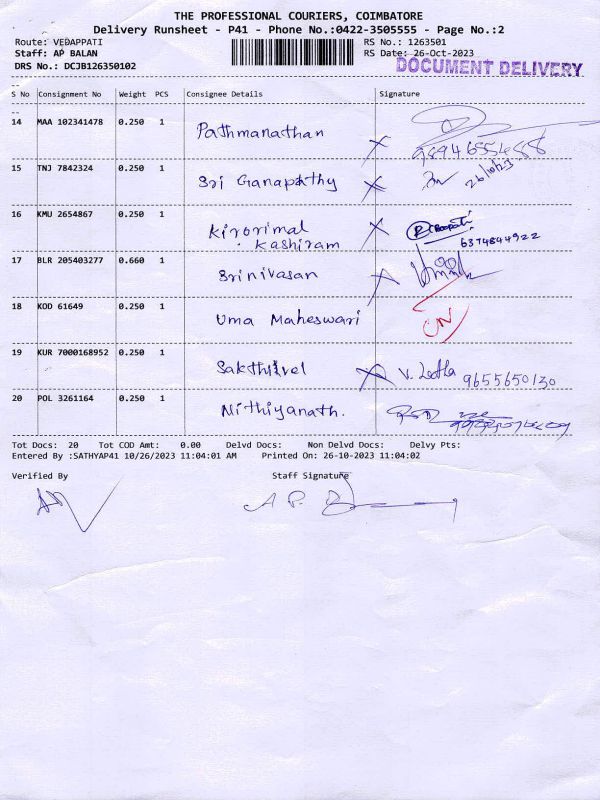 THE PROFESSIONAL COURIERS, COIMBATORE
Delivery Runsheet - P41 - Phone No.:0422-3505555 - Page No.:2
Route: VEDAPPATI RS No.: 1263501
Staff: AP BALAN RS Date: 26-Oct-2023
DRS No.: DCJB126350102 DOCUMENT DELIVERY
S No Consignment No Weight PCS Consignee Details Signature
14 MAA 102341478 0.250 1 Pathmanathan
9894655488
15 TNJ 7842324 0.250 1 Sri Ganapathy 26/10/23
16 KMU 2654867 0.250 1 Kirorimal
Kashiram 6374844922
17 BLR 205403277 0.660 1 Srinivasan
18 KOD 61649 0.250 1 Uma Maheswari CN
19 KUR 7000168952 0.250 1 Sakthivel V. Letha 9655650130
20 POL 3261164 0.250 1 Nithiyanath.
Tot Docs: 20 Tot COD Amt: 0.00 Delvd Docs: Non Delvd Docs: Delvy Pts:
Entered By :SATHYAP41 10/26/2023 11:04:01 AM Printed On: 26-10-2023 11:04:02
Verified By Staff Signature
A P.